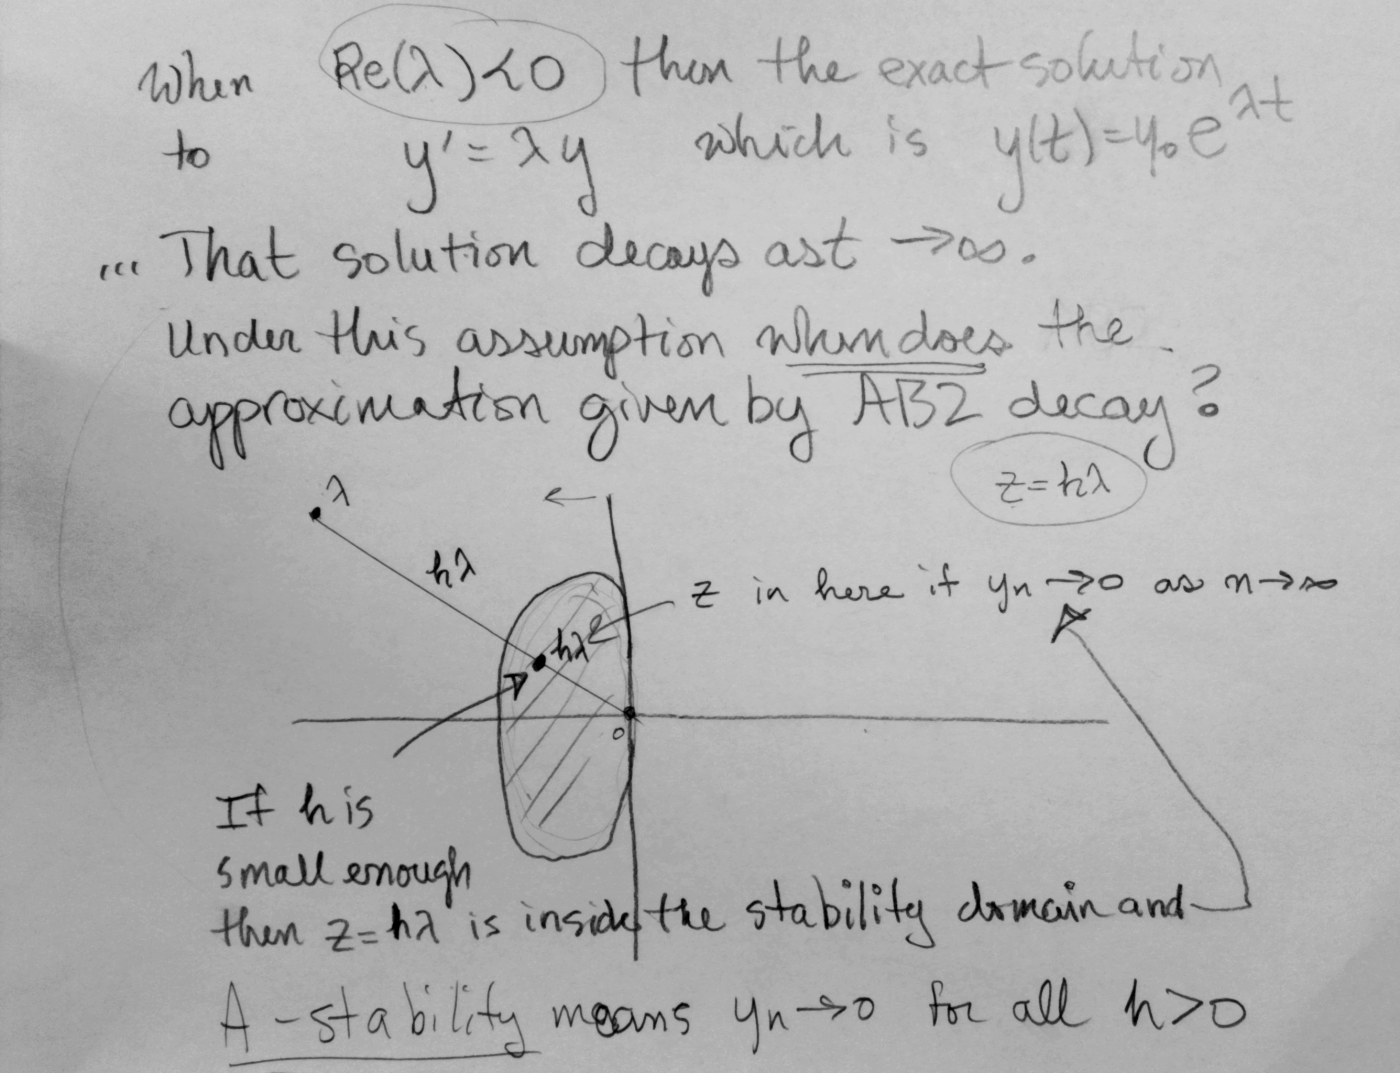 When Re(λ)<0 then the exact solution
to y' = λy which is y(t)=y₀e^λt
... That solution decays as t →∞.
Under this assumption when does the
approximation given by AB2 decay?
z=hλ
λ
hλ
z in here if yₙ→0 as n→∞
hλ
0
If h is
small enough
then z=hλ is inside the stability domain and
A-stability means yₙ→0 for all h>0